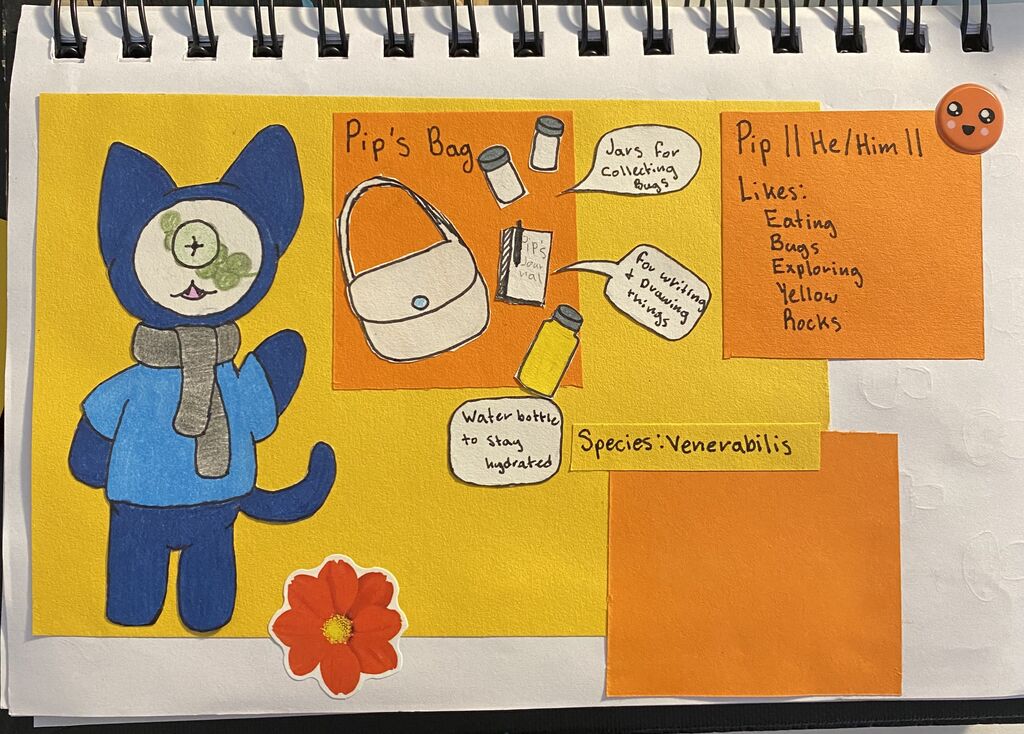 Pip's Bag
Jars for
Collecting
Bugs
Pip's
Jour
nal
for writing
+ Drawing
things
Water bottle
to stay
hydrated
Species: Venerabilis
Pip || He/Him ||
Likes:
Eating
Bugs
Exploring
Yellow
Rocks